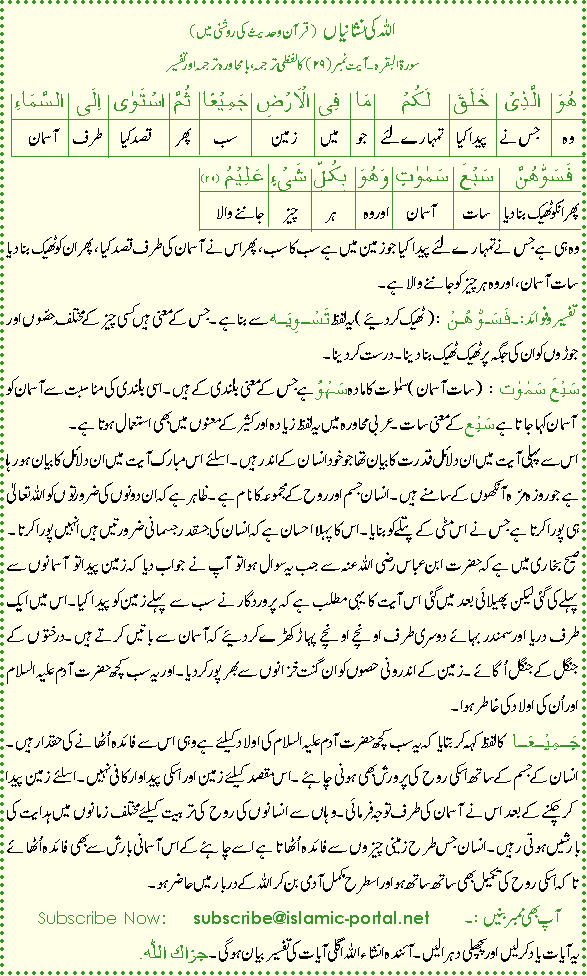 اللہ کی نشانیاں (قرآن و حدیث کی روشنی میں)
سورۃ البقرہ۔ آیت نمبر (۲۹) کا لفظی ترجمہ، با محاورہ ترجمہ اور تفسیر
هُوَ الَّذِىْ خَلَقَ لَكُمْ مَا فِى الْاَرْضِ جَمِيْعًا ثُمَّ اسْتَوٰى اِلَى السَّمَآءِ
وہ جس نے پیدا کیا تمہارے لئے جو میں زمین سب پھر قصد کیا طرف آسمان
فَسَوّٰهُنَّ سَبْعَ سَمٰوٰتٍ وَهُوَ بِكُلِّ شَىْءٍ عَلِيْمٌ (۲۹)
پھر انکو ٹھیک بنا دیا سات آسمان اور وہ ہر چیز جاننے والا
وہ ہی ہے جس نے تمہارے لئے پیدا کیا جو زمین میں ہے سب کا سب، پھر اس نے آسمان کی طرف قصد کیا، پھر ان کو ٹھیک بنا دیا
سات آسمان، اور وہ ہر چیز کو جاننے والا ہے۔
تفسیر و فوائد:۔ فَسَوّٰهُنَّ : (ٹھیک کر دیئے) یہ لفظ تَسْوِيَه سے بنا ہے۔ جس کے معنی ہیں کسی چیز کے مختلف حصّوں اور
جوڑوں کو ان کی جگہ پر ٹھیک ٹھیک بنا دینا۔ درست کر دینا۔
سَبْعَ سَمٰوٰت : (سات آسمان) سمٰوٰت کا مادہ سَمُوٌ ہے جس کے معنی بلندی کے ہیں۔ اسی بلندی کی مناسبت سے آسمان کو
آسمان کہا جاتا ہے سَبْع کے معنی سات۔ عربی محاورہ میں یہ لفظ زیادہ اور کثیر کے معنوں میں بھی استعمال ہوتا ہے۔
اس سے پہلی آیت میں ان دلائل قدرت کا بیان تھا جو خود انسان کے اندر ہیں۔ اسلئے اس مبارک آیت میں ان دلائل کا بیان ہو رہا
ہے جو روزہ مرّہ آنکھوں کے سامنے ہیں۔ انسان جسم اور روح کے مجموعہ کا نام ہے۔ ظاہر ہے کہ ان دونوں کی ضرورتوں کو اللہ تعالیٰ
ہی پورا کرتا ہے جس نے اس مٹی کے پتلے کو بنایا۔ اس کا پہلا احسان ہے کہ انسان کی جسقدر جسمانی ضرورتیں ہیں انہیں پورا کرتا۔
صحیح بخاری میں ہے کہ حضرت ابن عباس رضی اللہ عنہ سے جب یہ سوال ہوا تو آپ نے جواب دیا کہ زمین پیدا تو آسمانوں سے
پہلے کی گئی لیکن پھیلائی بعد میں گئی اس آیت کا یہی مطلب ہے کہ پروردگار نے سب سے پہلے زمین کو پیدا کیا۔ اس میں ایک
طرف دریا اور سمندر بہائے دوسری طرف اونچے اونچے پہاڑ کھڑے کر دیئے کہ آسمان سے باتیں کرتے ہیں۔ درختوں کے
جنگل کے جنگل اُگائے۔ زمین کے اندرونی حصوں کو ان گنت خزانوں سے بھر پور کر دیا۔ اور یہ سب کچھ حضرت آدم علیہ السلام
اور اُن کی اولاد کی خاطر ہوا۔
جَمِيْعًا کا لفظ کہہ کر بتایا کہ یہ سب کچھ حضرت آدم علیہ السلام کی اولاد کیلئے ہے وہی اس سے فائدہ اُٹھانے کی حقدار ہیں۔
انسان کے جسم کے ساتھ اسکی روح کی پرورش بھی ہونی چاہئے۔ اس مقصد کیلئے زمین اور اسکی پیداوار کافی نہیں۔ اسلئے زمین پیدا
کر چکنے کے بعد اس نے آسمان کی طرف توجہ فرمائی۔ وہاں سے انسانوں کی روح کی تربیت کیلئے مختلف زمانوں میں ہدایت کی
بارشیں ہوتی رہیں۔ انسان جس طرح زمینی چیزوں سے فائدہ اُٹھاتا ہے اسے چاہئے کے اس آسمانی بارش سے بھی فائدہ اُٹھائے
تا کہ اسکی روح کی تکمیل بھی ساتھ ساتھ ہو اور اسطرح مکمل آدمی بن کر اللہ کے دربار میں حاضر ہو۔
آپ بھی ممبر بنیں :۔ subscribe@islamic-portal.net Subscribe Now:
یہ آیات یاد کر لیں اور پچھلی دہرا لیں۔ آئندہ انشاء اللہ اگلی آیات کی تفسیر بیان ہوگی۔ جزاک اللّٰہ.